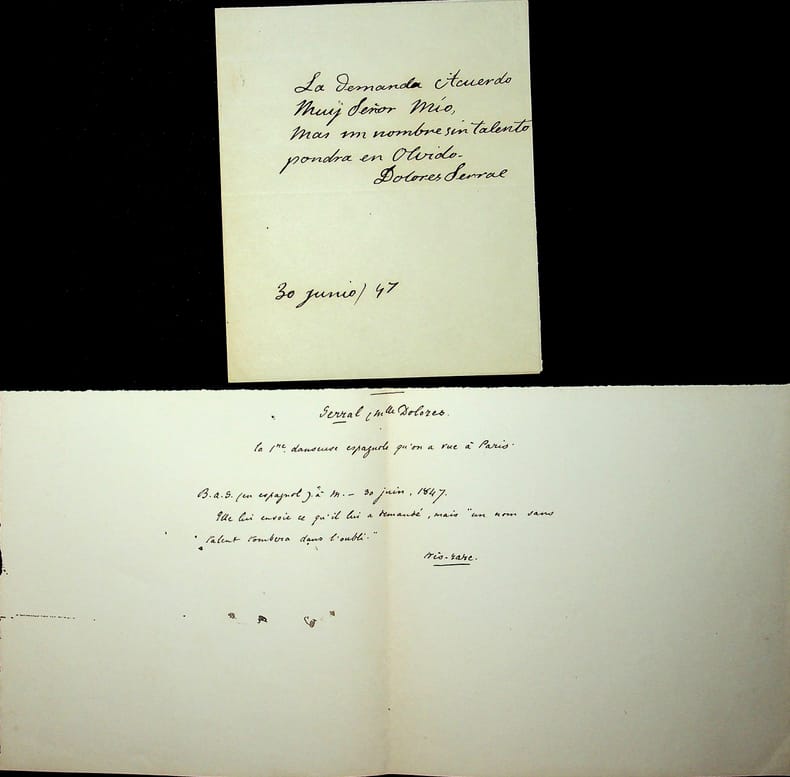 La demanda Acuerdo
Muÿ Señor Mío,
Mas un nombre sin talento
pondra en Olvido.
Dolores Serral
30 junio/47
Serral (Mlle Dolores.
la 1re danseuse espagnole qu'on a vue à Paris.
B.a.s. (en espagnol). à M. — 30 juin, 1847.
Elle lui envoie ce qu'il lui a demandé, mais "un nom sans
talent tombera dans l'oubli."
très-rare.